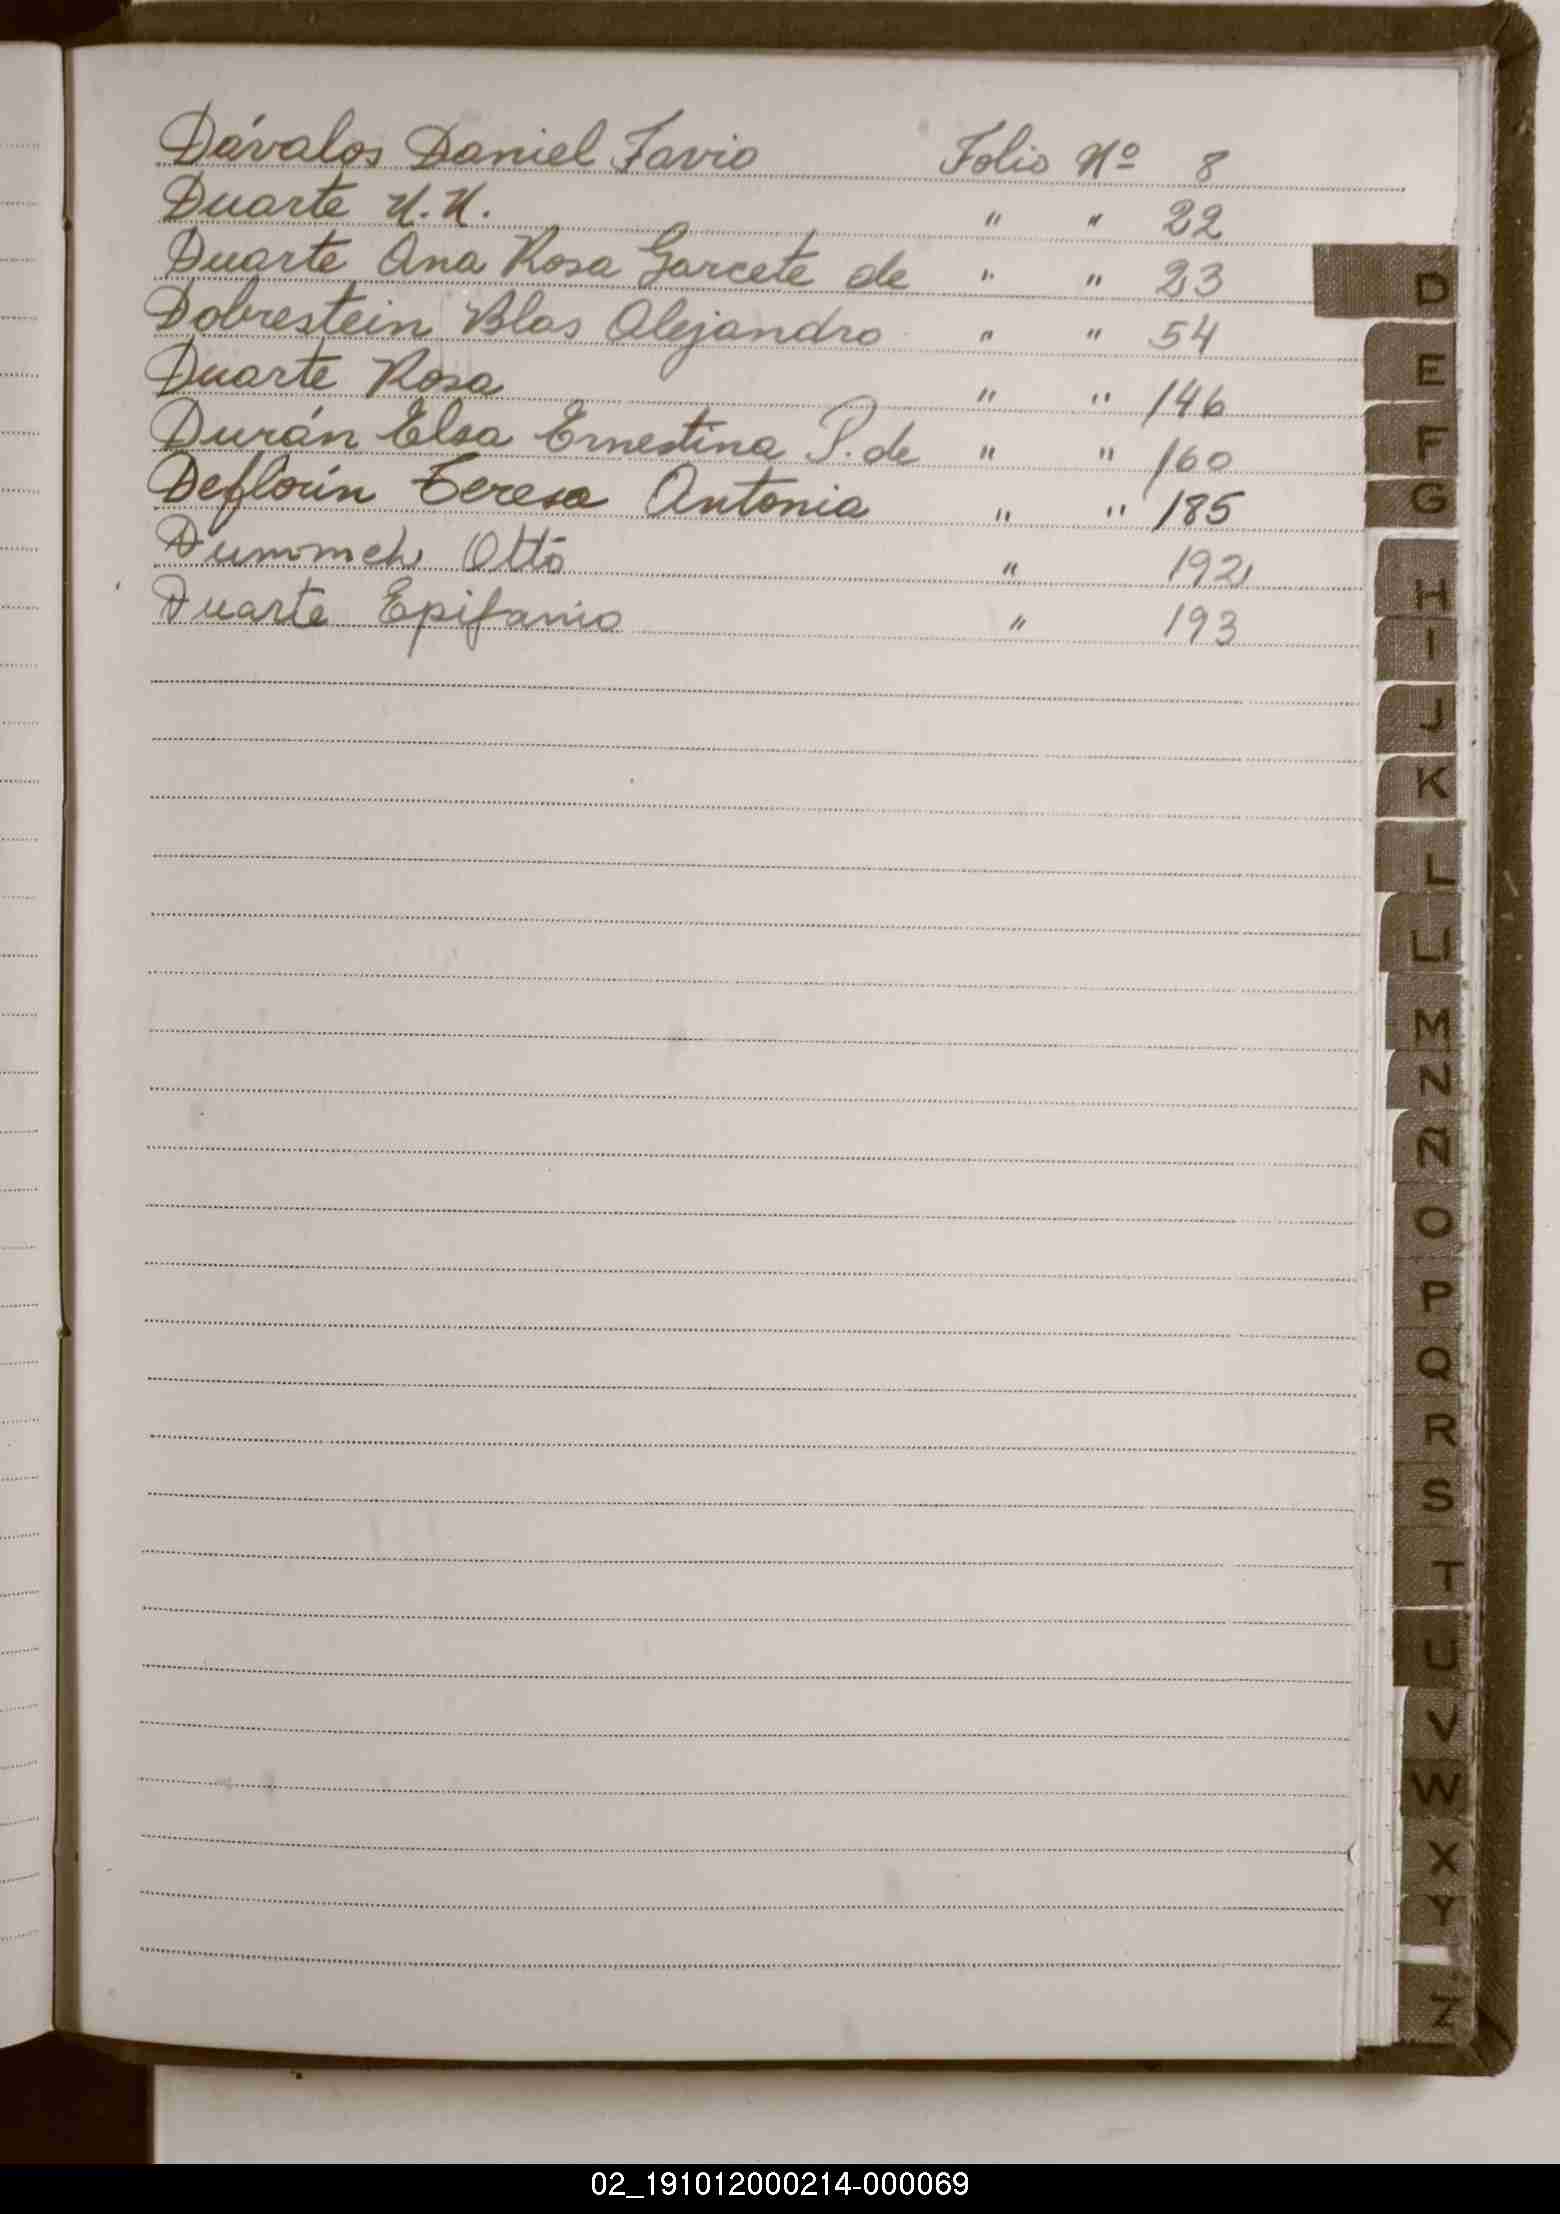 Dávalos Daniel Favio Folio Nº 8
Duarte N.N. " " 22
Duarte Ana Rosa Garcete de " " 23
Dobrestein Blas Alejandro " " 54
Duarte Rosa " " 146
Durán Elsa Ernestina P. de " " 160
Deflorín Teresa Antonia " " 185
Otto " 192
Duarte Epifanio " 193
D
E
F
G
H
I
J
K
L
LL
M
N
Ñ
O
P
Q
R
S
T
U
V
W
X
Y
Z
02_191012000214-000069